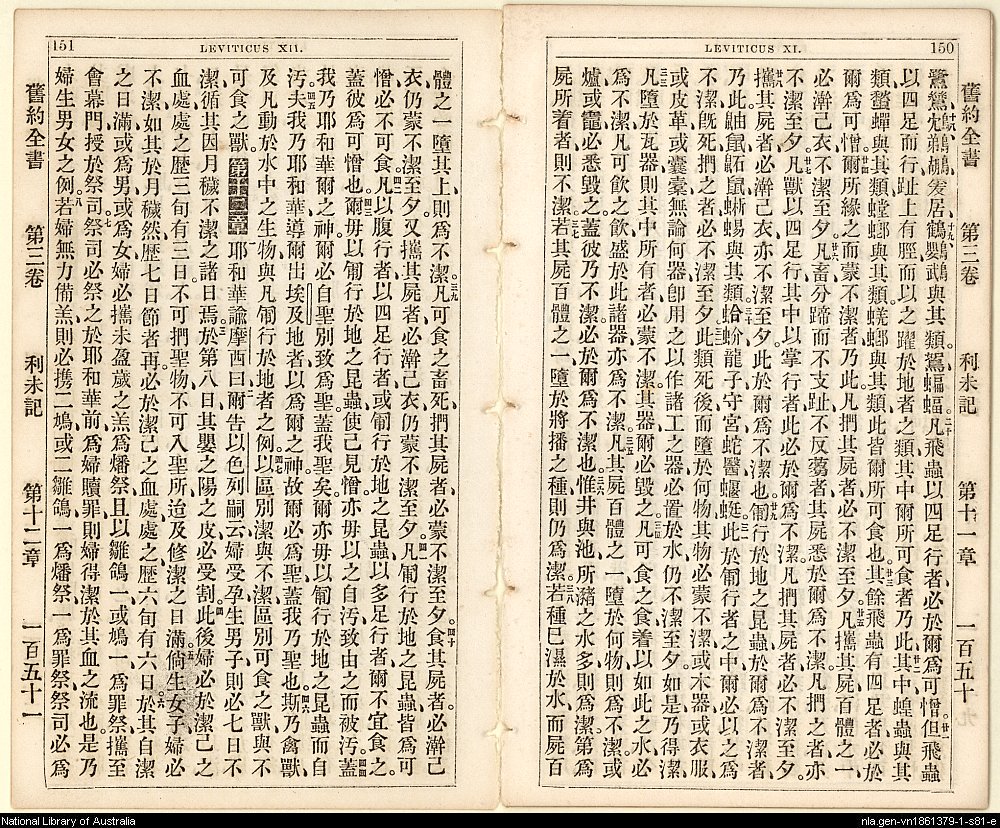 LEVITICUS XI.
150
舊約全書
第三卷
利未記
第十一章
一百五十
以四足而行、趾上有脛、而以之躍於地者之類、其中爾所可食者、乃此其中蝗蟲與其
類、螽蟬與其類、螳螂與其類、蜣螂與其類、此皆爾所可食也、其餘飛蟲有四足者、必於
爾為可憎、爾所緣之而蒙不潔者乃此、凡捫其屍者、必不潔至夕、凡攜其屍百體之一、
必澣己衣不潔至夕、凡畜分蹄而不支趾、不反芻者、其屍悉於爾為不潔、凡捫之者亦
不潔至夕、凡獸以四足行、其中以掌行者、此必於爾為不潔、凡捫其屍者、必不潔至夕。
攜其屍者必澣己衣、亦不潔至夕、此於爾為不潔也、匍行於地之昆蟲、於爾為不潔者、
不潔、既死捫之者、必不潔至夕、此類死後而墮於何物、其物必蒙不潔、或木器或衣服、
或皮革或囊橐、無論何器、卽用之以作諸工之器、必置於水、仍不潔至夕、如是乃得潔、
凡墮於瓦器、則其中所有者、必蒙不潔、其器爾必毀之、凡可食之食着以如此之水、必
為不潔、凡可飲之飲盛於此諸器、亦為不潔、凡其屍百體之一、墮於何物、則為不潔、或
爐或竈、必悉毀之、蓋彼乃不潔、必於爾為不潔也、惟井與池、所瀦之水多、則為潔、第為
屍所着者、則不潔、若其屍百體之一、墮於將播之種、則仍為潔、若種已濕於水、而屍百
LEVITICUS XII.
151
體之一墮其上、則為不潔。凡可食之畜死、捫其屍者、必蒙不潔至夕。食其屍者、必澣己
衣、仍蒙不潔至夕、又攜其屍者、必澣己衣、仍蒙不潔至夕。凡匍行於地之昆蟲皆為可
憎、必不可食。凡以腹行者、以四足行者、或匍行於地之昆蟲、以多足行者、爾不宜食之、
蓋彼為可憎也。爾毋以匍行於地之昆蟲、使己見憎、亦毋以之自汚、致由之而被汚、蓋
我乃耶和華爾之神、爾必自聖別致為聖、蓋我聖矣、爾亦毋以匍行於地之昆蟲而自
汚、夫我乃耶和華、導爾出埃及地者、以為爾之神、故爾必為聖、蓋我乃聖也。斯乃禽獸、
及凡動於水中之生物、與凡匍行於地者之例、以區別潔與不潔、區別可食之獸與不
可食之獸。第十二章 耶和華諭摩西曰、爾告以色列嗣云、婦受孕生男子、則必七日不
潔、循其因月穢不潔之諸日焉。於第八日其嬰之陽之皮必受割。此後婦必於潔己之
血處、處之歷三旬有三日、不可捫聖物、不可入聖所、迨及修潔之日滿。倘生女子、婦必
不潔、如其於月穢然、歷七日節者再。必於潔己之血處、處之歷六旬有六日。於其自潔
之日滿、或為男、或為女、婦必攜未盈歲之羔為燔祭、且以雛鴿一或鳩一、為罪祭、攜至
會幕門、授於祭司。祭司必祭之於耶和華前、為婦贖罪、則婦得潔於其血之流也。是乃
婦生男女之例。若婦無力備羔、則必携二鳩、或二雛鴿、一為燔祭、一為罪祭、祭司必為
舊約全書
第三卷
利未記
第十二章
一百五十一
National Library of Australia
nla.gen-vn1861379-1-s81-e